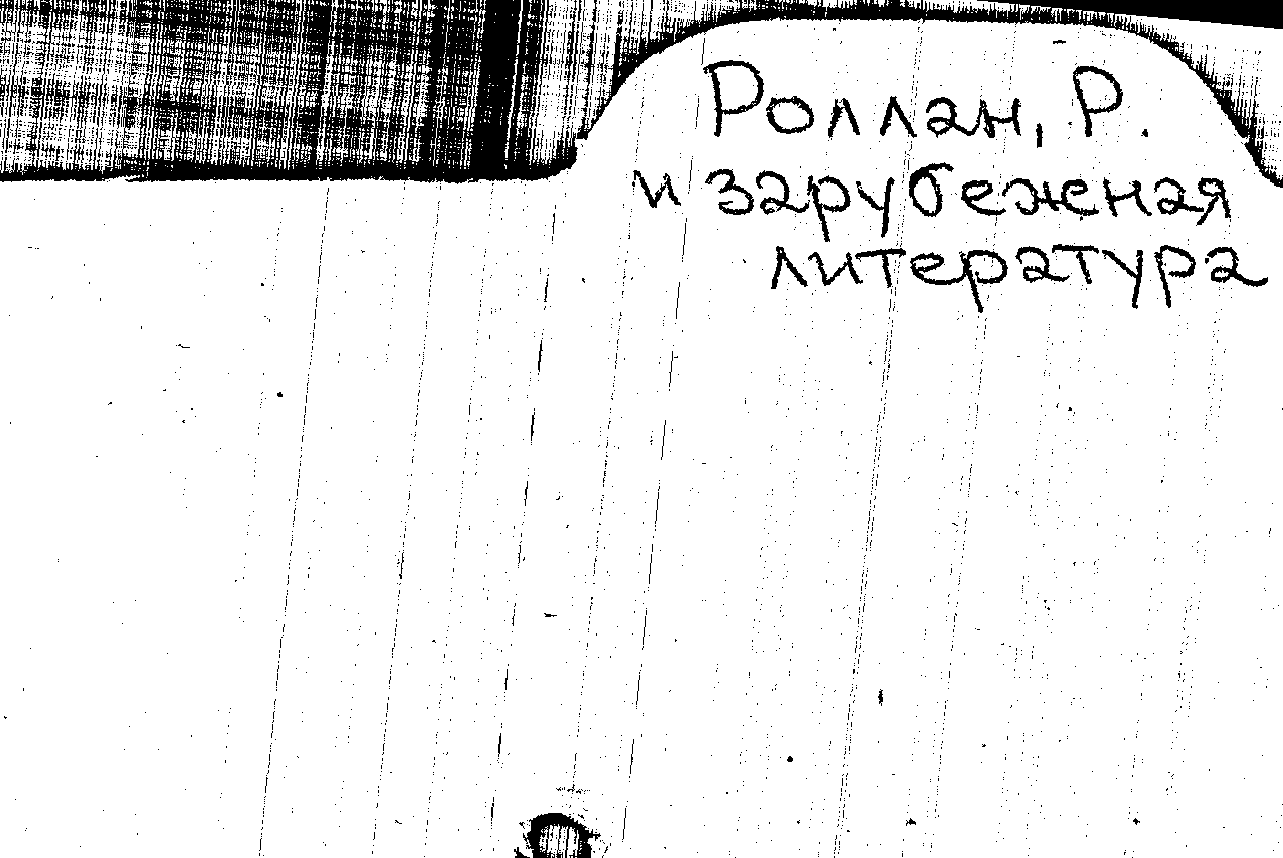 Роллан, Р.
и зарубежная
литература